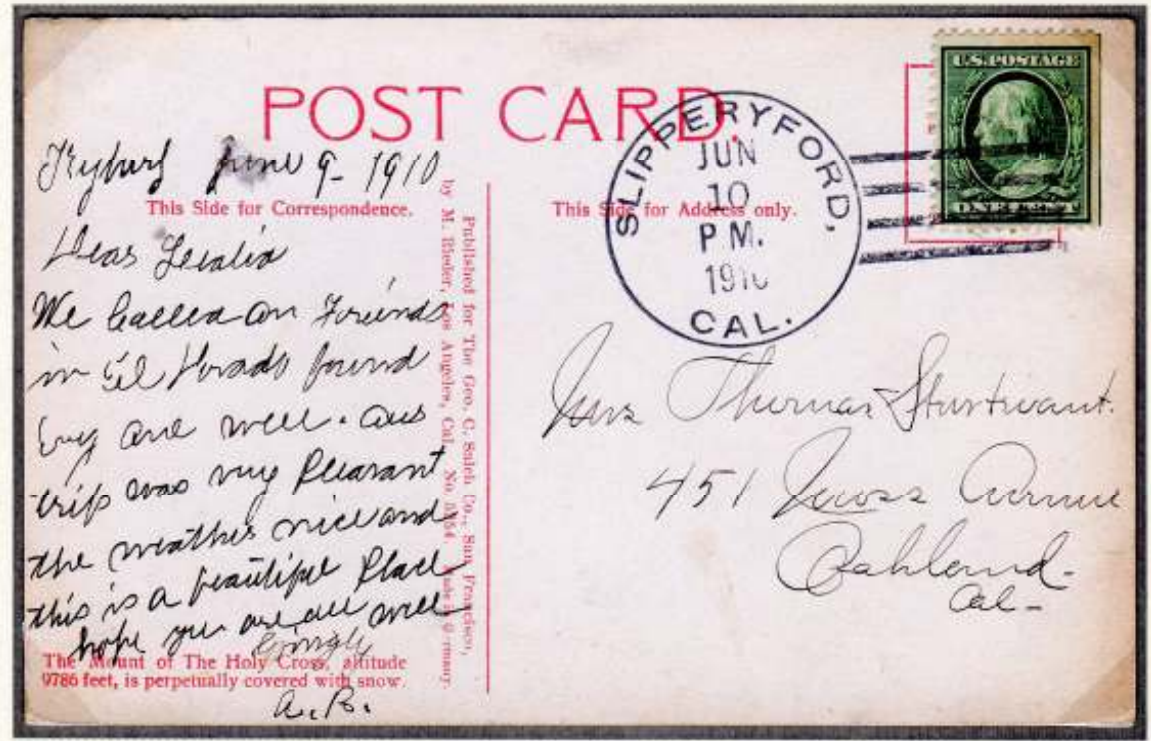 POST CARD.
Kyburz June 9 - 1910
This Side for Correspondence.
Dear
We Called on Friends
in El Dorado found
are well. our
trip was very Pleasant
the weather nice and
this is a beautiful Place
hope you are all well
Lovingly
The Mount of The Holy Cross, altitude
9786 feet, is perpetually covered with snow.
A. B.
Published for The Geo. C. Co., San Francisco,
by M. Rieder, Los Angeles, Cal. No. Made in Germany.
This Side for Address only.
SLIPPERYFORD,
JUN
10
P M.
1910
CAL.
U.S. POSTAGE
ONE CENT
Mrs Thomas Sturtivant.
451 Avenue
Oakland.
Cal -